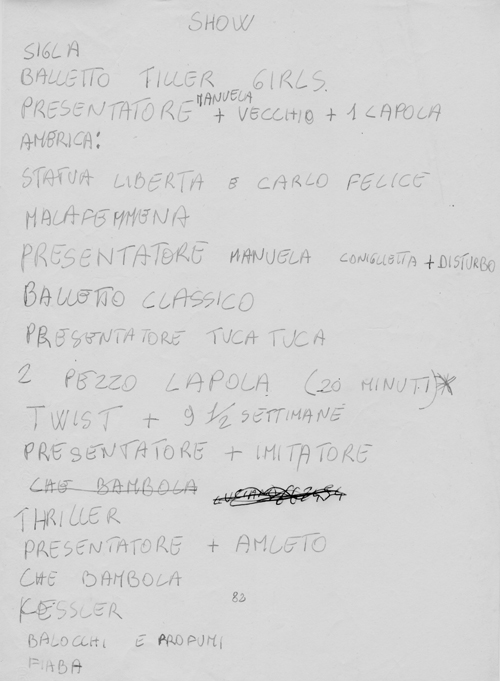 SHOW
SIGLA
BALLETTO TILLER GIRLS
MANUELA
PRESENTATORE + VECCHIO + 1 LAPOLA
AMERICA:
STATUA LIBERTA E CARLO FELICE
MALAFEMMENA
PRESENTATORE MANUELA CONIGLIETTA + DISTURBO
BALLETTO CLASSICO
PRESENTATORE TUCA TUCA
2 PEZZO LAPOLA (20 MINUTI)*
TWIST + 9 1/2 SETTIMANE
PRESENTATORE + IMITATORE
CHE BAMBOLA
THRILLER
PRESENTATORE + AMLETO
CHE BAMBOLA
82
KESSLER
BALOCCHI E PROFUMI
FIABA